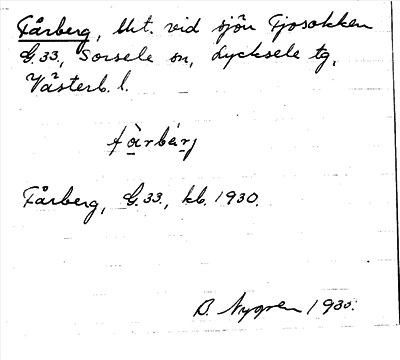 Fårberg, lht. vid sjön Tjosokken
G.33, Sorsele sn, Lycksele tg,
Västerb. l.
fàrbárj
Fårberg, G.33., kb. 1930.
B. Nygren 1930.